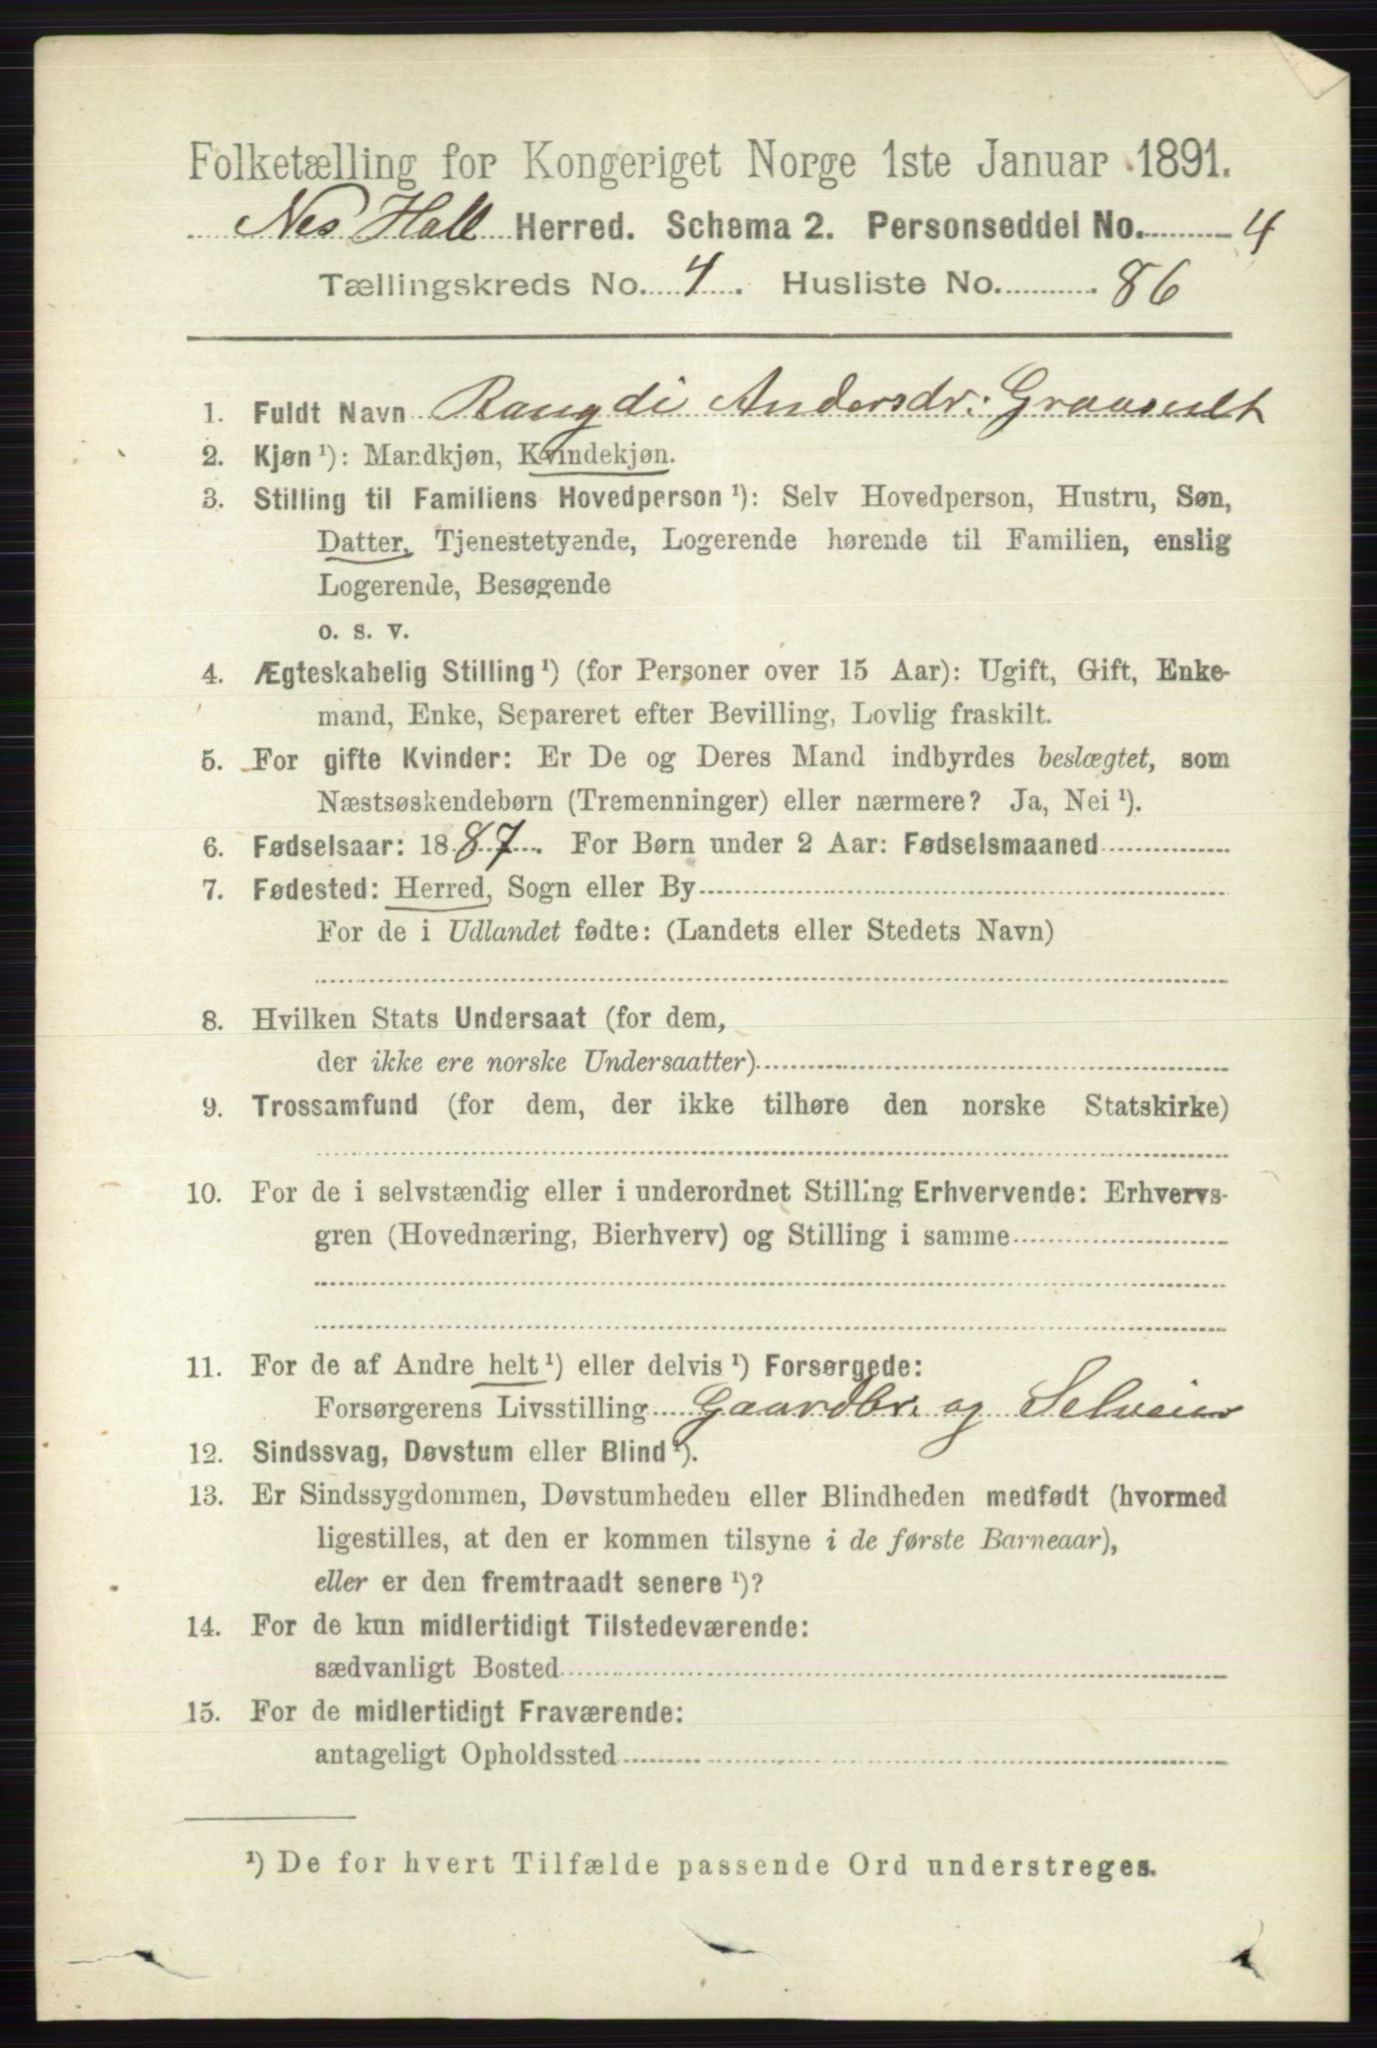 Folketælling for Kongeriget Norge 1ste Januar 1891.
Nes Hall Herred. Schema 2. Personseddel No. 4
Tællingskreds No. 4. Husliste No. 86
1. Fuldt Navn Rangdi Andersdr: Graasult
2. Kjøn¹): Mandkjøn, Kvindekjøn.
3. Stilling til Familiens Hovedperson¹): Selv Hovedperson, Hustru, Søn,
Datter, Tjenestetyende, Logerende hørende til Familien, enslig
Logerende, Besøgende
o. s. v.
4. Ægteskabelig Stilling¹) (for Personer over 15 Aar): Ugift, Gift, Enke-
mand, Enke, Separeret efter Bevilling, Lovlig fraskilt.
5. For gifte Kvinder: Er De og Deres Mand indbyrdes beslægtet, som
Næstsøskendebørn (Tremenninger) eller nærmere? Ja, Nei¹).
6. Fødselsaar: 1887. For Børn under 2 Aar: Fødselsmaaned
7. Fødested: Herred, Sogn eller By
For de i Udlandet fødte: (Landets eller Stedets Navn)
8. Hvilken Stats Undersaat (for dem,
der ikke ere norske Undersaatter)
9. Trossamfund (for dem, der ikke tilhøre den norske Statskirke)
10. For de i selvstændig eller i underordnet Stilling Erhvervende: Erhvervs-
gren (Hovednæring, Bierhverv) og Stilling i samme
11. For de af Andre helt¹) eller delvis¹) Forsørgede:
Forsørgerens Livsstilling Gaardbr. og Selveier
12. Sindssvag, Døvstum eller Blind¹).
13. Er Sindssygdommen, Døvstumheden eller Blindheden medfødt (hvormed
ligestilles, at den er kommen tilsyne i de første Barneaar),
eller er den fremtraadt senere¹)?
14. For de kun midlertidigt Tilstedeværende:
sædvanligt Bosted
15. For de midlertidigt Fraværende:
antageligt Opholdssted
¹) De for hvert Tilfælde passende Ord understreges.